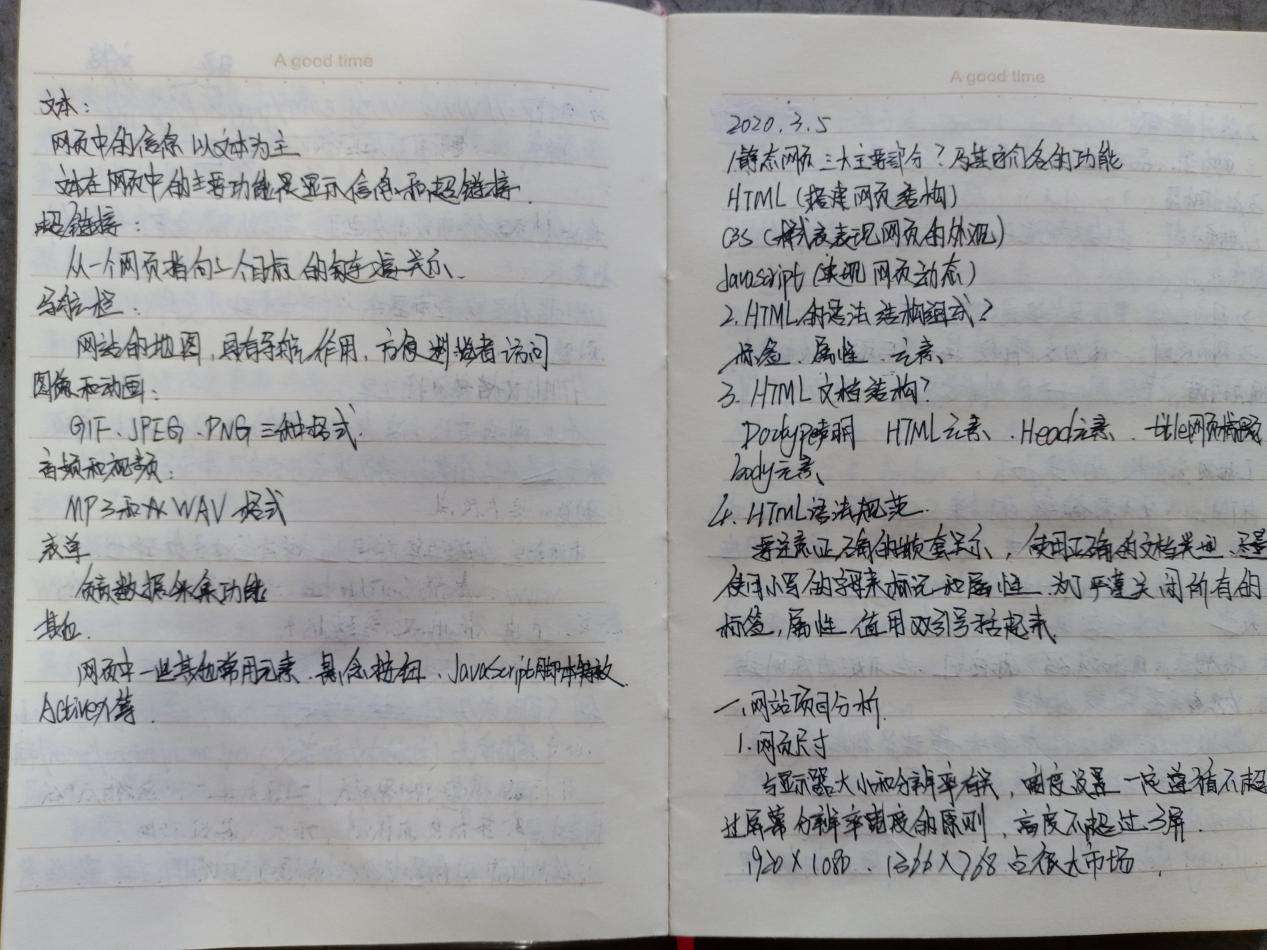 A good time
文本：
网页中的信息以文本为主
文本在网页中的主要功能是显示信息和超链接.
超链接：
从一个网页指向一个目标的链接关系、
导航栏.
网站的地图，具有导航作用，方便浏览者访问
图像和动画：
GIF、JPEG、PNG三种格式.
音频和视频：
MP3和 WAV格式
表单
负责数据采集功能
其他.
网页中一些其他常用元素、悬念按钮、JavaScript脚本特效.
ActiveX等.
A good time
2020.3.5
1.静态网页三大主要部分？及其它们各的功能
HTML（搭建网页结构）
CSS（样式表表现网页的外观）
Javascript（实现网页动态）
2.HTML的语法结构组成？
标签、属性、元素、
3、HTML文档结构？
Doctype声明 HTML元素、Head元素、title网页标题
body元素、
4、HTML语法规范.
要注意正确的嵌套关系，使用正确的文档类型、尽量
使用小写的字母来标记和属性、为了严谨关闭所有的
标签，属性值用双引号括起来
一、网站项目分析.
1、网页尺寸
与显示器大小和分辨率有关，宽度设置一定遵循不超
过屏幕分辨率宽度的原则，高度不超过3屏.
1920×1080、1366×768占很大市场，